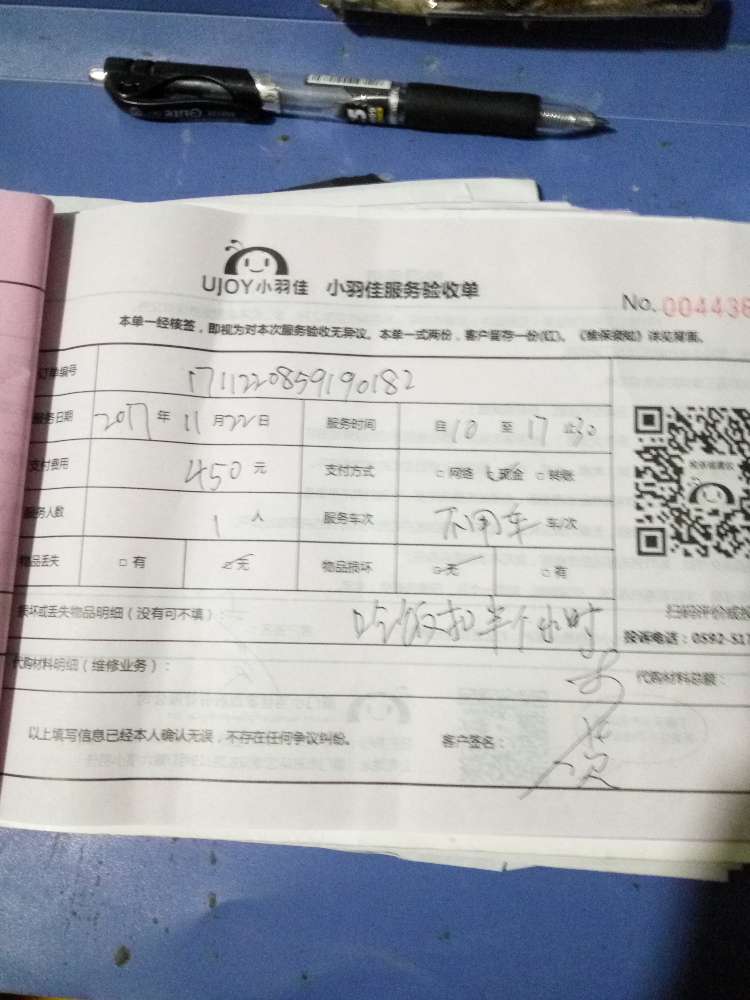 UJOY小羽佳 小羽佳服务验收单
No. 004438
本单一经核签，即视为对本次服务验收无异议。本单一式两份，客户留存一份(红)。《维保须知》详见背面。
订单编号 1711220859190182
服务日期 2017 年 11 月 22 日 服务时间 自 10 至 17 止 30
支付费用 450 元 支付方式 □ 网络 现金 □ 转账
服务人数 1 人 服务车次 不用车 车/次
物品丢失 □ 有 无 物品损坏 无 □ 有
损坏或丢失物品明细（没有可不填）： 吃饭扣半个小时
扫码评价或投
投诉电话：0592-517
代购材料明细（维修业务）： 代购材料总额：
以上填写信息已经本人确认无误，不存在任何争议纠纷。 客户签名：